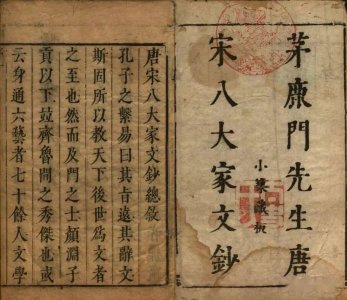 茅鹿門先生唐
宋八大家文鈔
唐宋八大家文鈔總敘
孔子之繫易曰其旨遠其辭文
斯固所以教天下後世為文者
之至也然而及門之士顏淵子
貢以下竝齊魯間之秀傑也或
云身通六藝者七十餘人文學